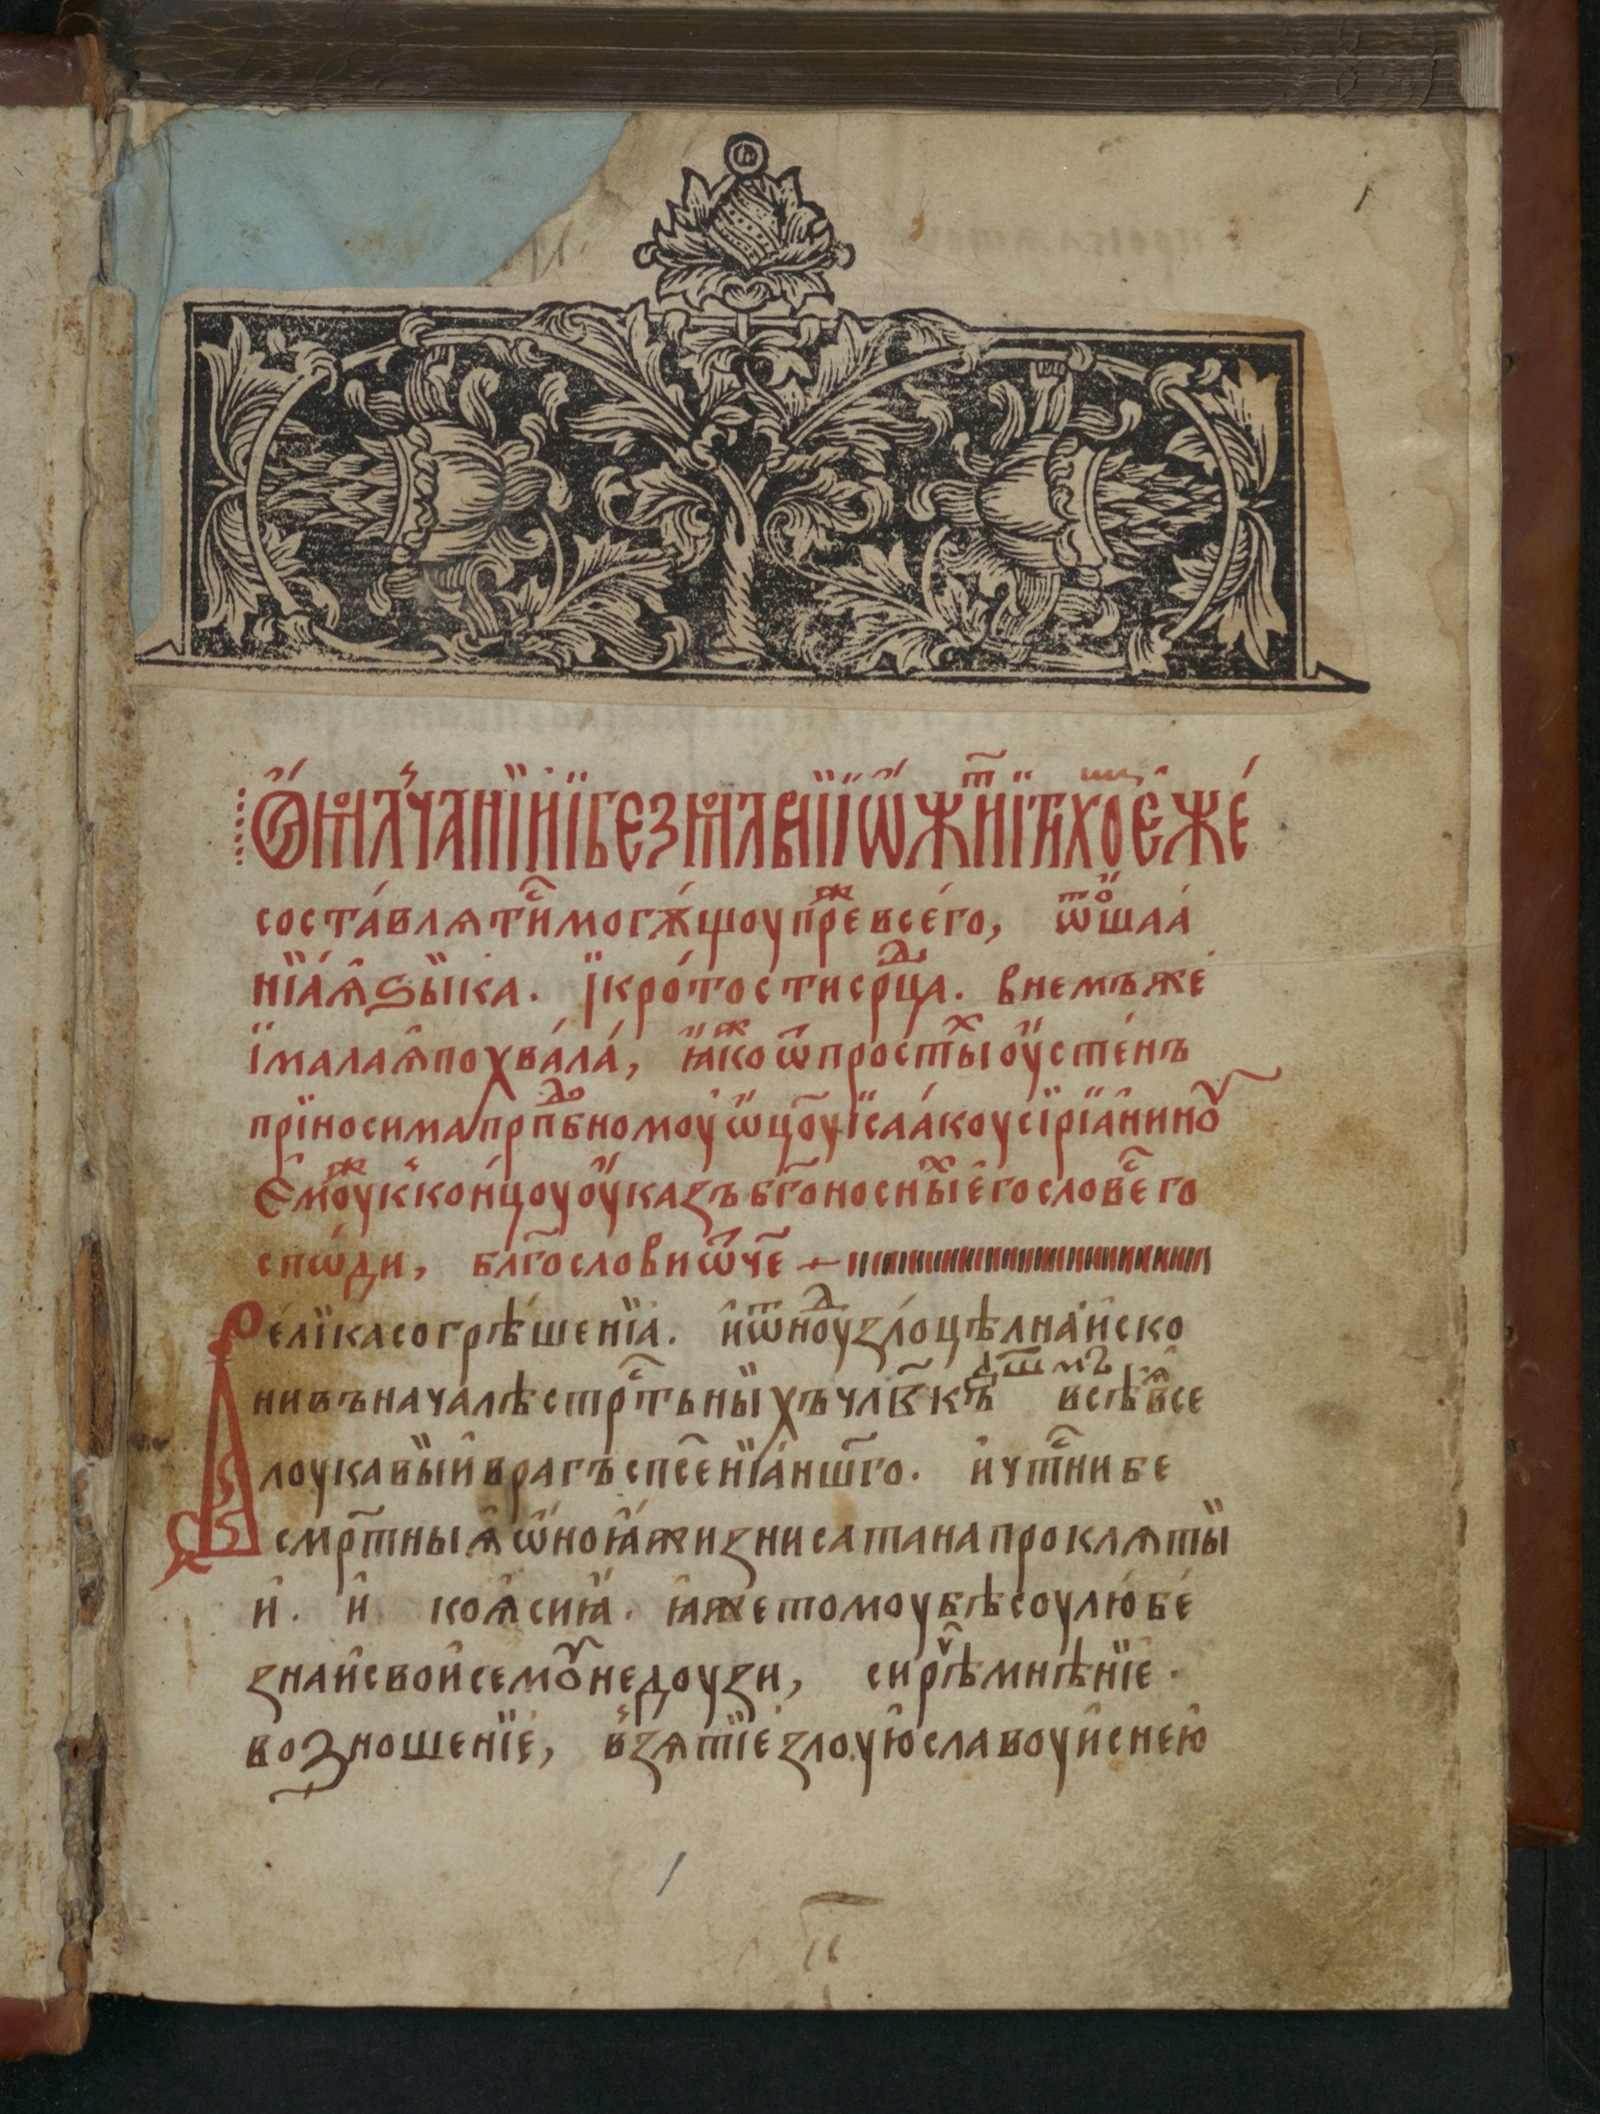 Ѡ молчанїи и безмолвїи и ѡ житїи тихо еже
составлѧти могѫщоу прⷤе всего, ѿ ѡшаа
нїа ѧзыка. и кротости срⷣца. в нем же
и малаѧ похвала, ꙗкоⷤ ѿ простыⷯ оустенъ
приносима прпⷣбномоу ѡц҃оу исаакоу сирїанинꙋ
Емоуⷤ к концоу оуказъ бг҃оносныⷯ его словеⷭ го
споди, блг҃ослови ѡч҃е
Велїка согрѣшенїа. и ѿноуⷣ злоцѣлна искo
ни в началѣ стрⷭтьныхъ чл҃вкъ дш҃мъ всѣⷯ все
лоукавый врагъ сп҃сенїа нш҃го. и чтⷭни бе
смрт҃ныѧ ѡноѧ жизни сатана проклѧты
и. и коѧ сиꙗ. ꙗже томоу бѣсоу любе
зна и свойсемꙋ недоузи, сирѣⷱ мнѣнїе.
возношенїе, взѧтїе злоую славоу и с нею